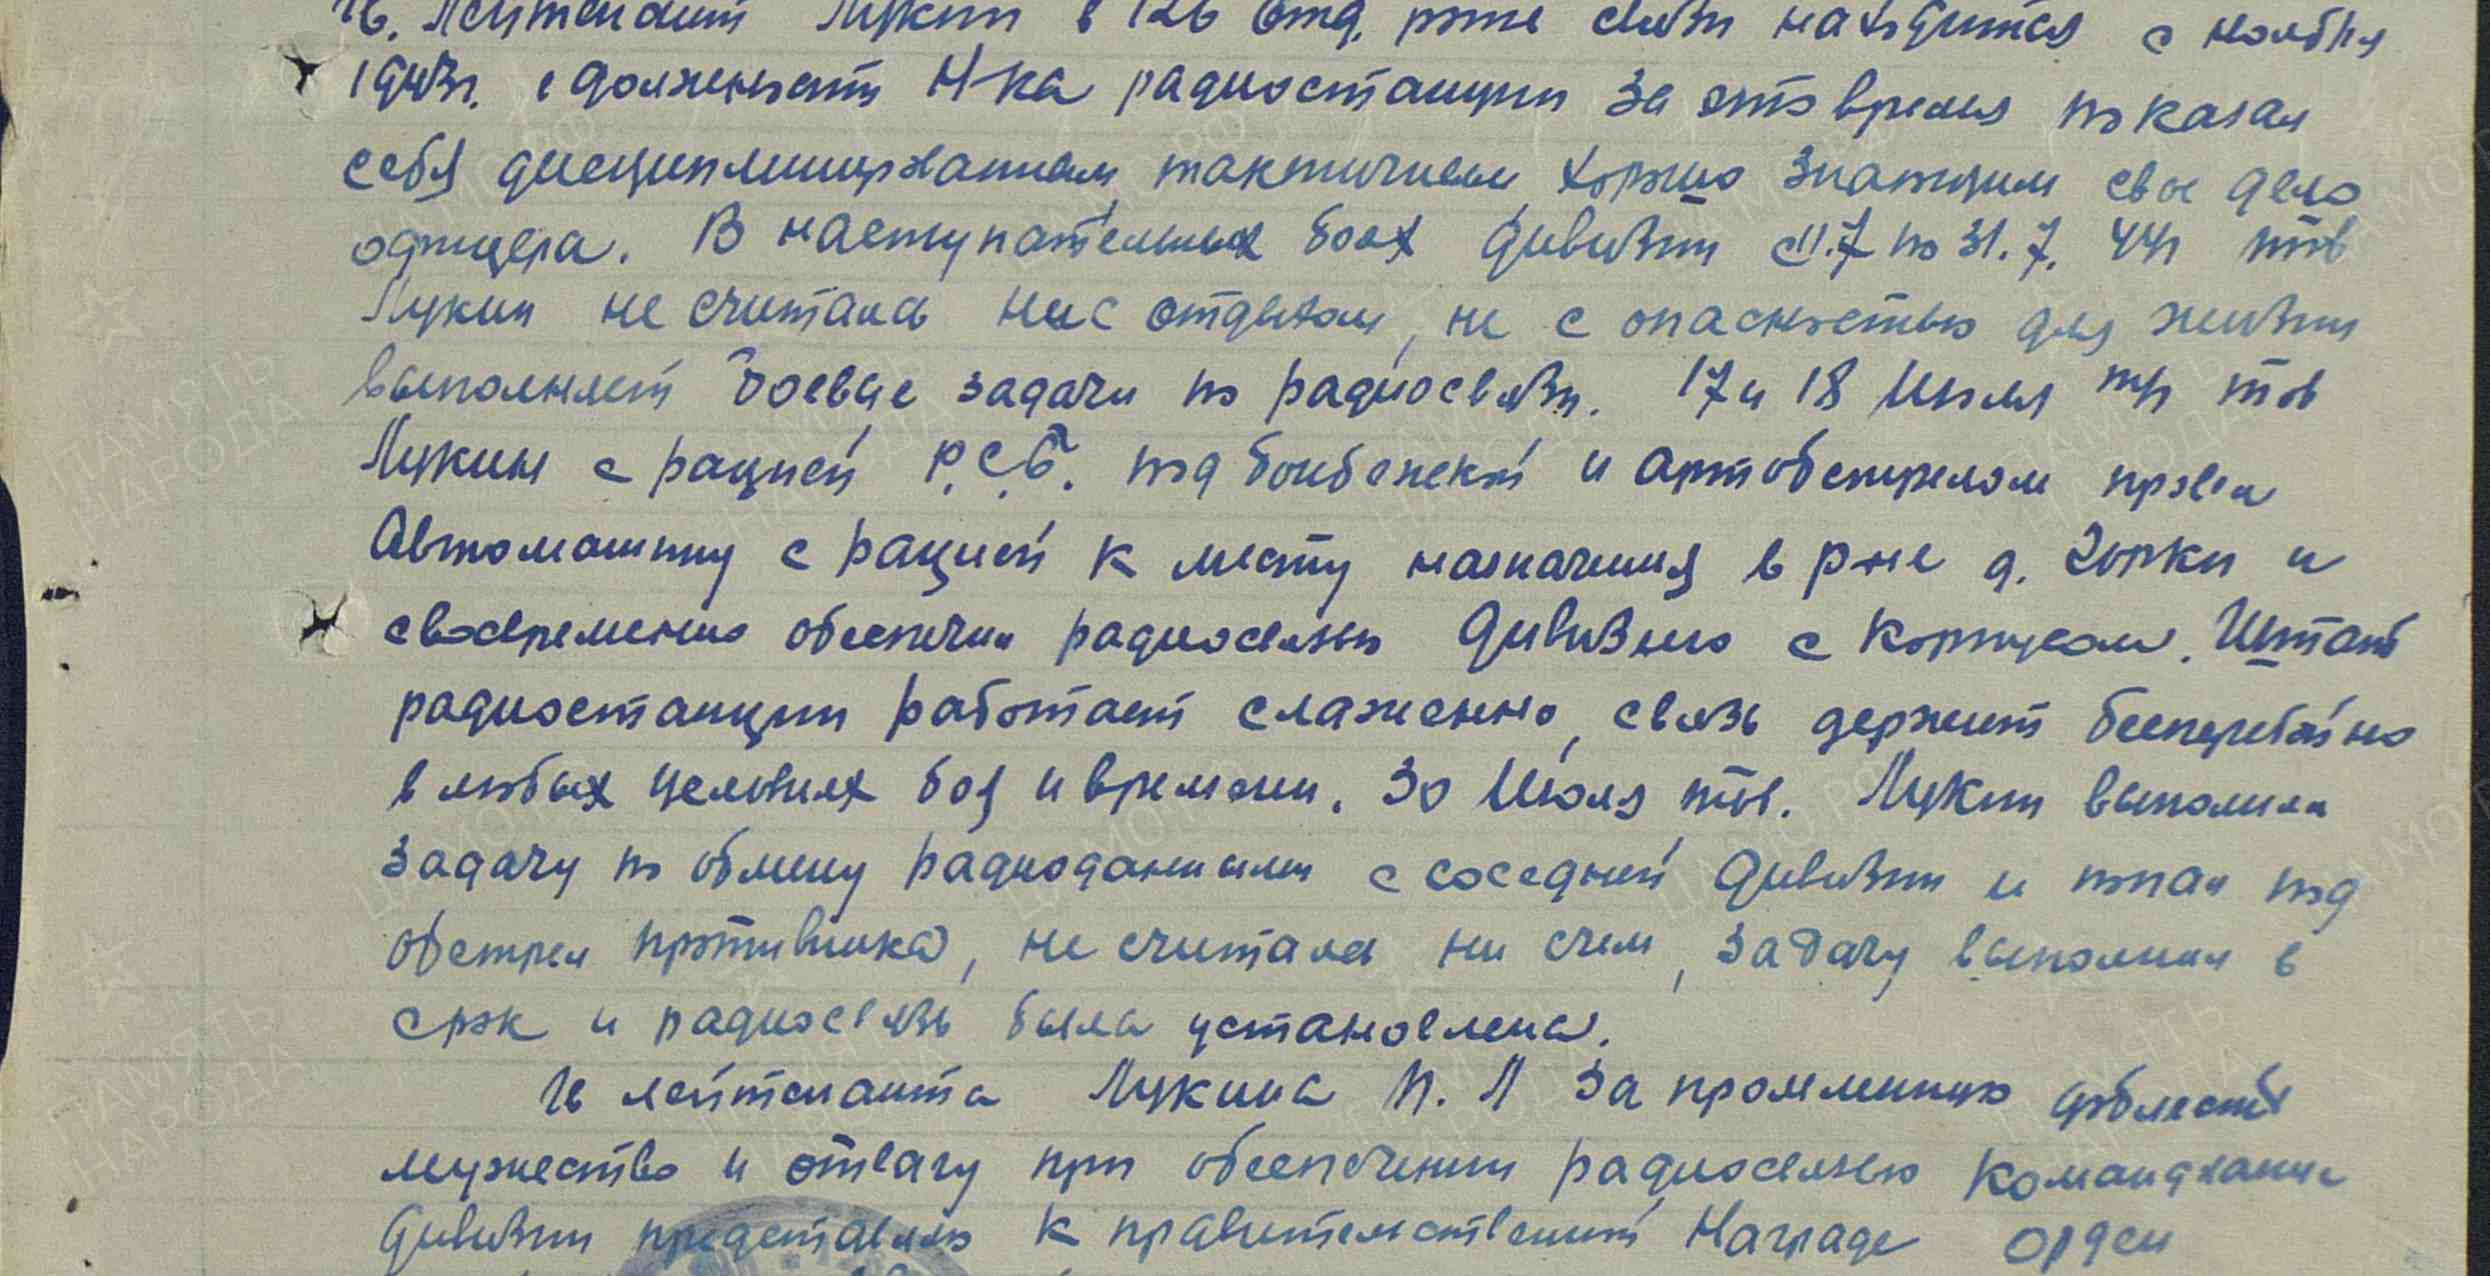 Лейтенант Лукин в 126 отд. роте связи находится с ноября
1943г. в должности Н-ка радиостанции за это время показал
себя дисциплинированным, тактичным, хорошо знающим свое дело
офицера. В наступательных боях дивизии с 11.7 по 31.7. 44г тов
Лукин не считаясь ни с отдыхом, ни с опасностью для жизни
выполняет боевые задачи по радиосвязи. 17 и 18 Июля тов
Лукин с рацией Р.С.Б. под бомбежкой и артобстрелом провел
Автомашину с рацией к месту назначения в р-не д. Горки и
своевременно обеспечил радиосвязью дивизию с корпусом. Штат
радиостанции работает слаженно, связь держит бесперебойно
в любых условиях боя и времени. 30 Июля тов. Лукин выполнял
задачу по обмену радиоданными с соседней дивизии и попал под
обстрел противника, не считаясь ни с чем, задачу выполнил в
срок и радиосвязь была установлена.
лейтенанта Лукина П. Л за проявленную доблесть
мужество и отвагу при обеспечении радиосвязью командование
дивизии представляю к правительственной Награде орден
ПАМЯТЬ НАРОДА
ЦАМО.РФ